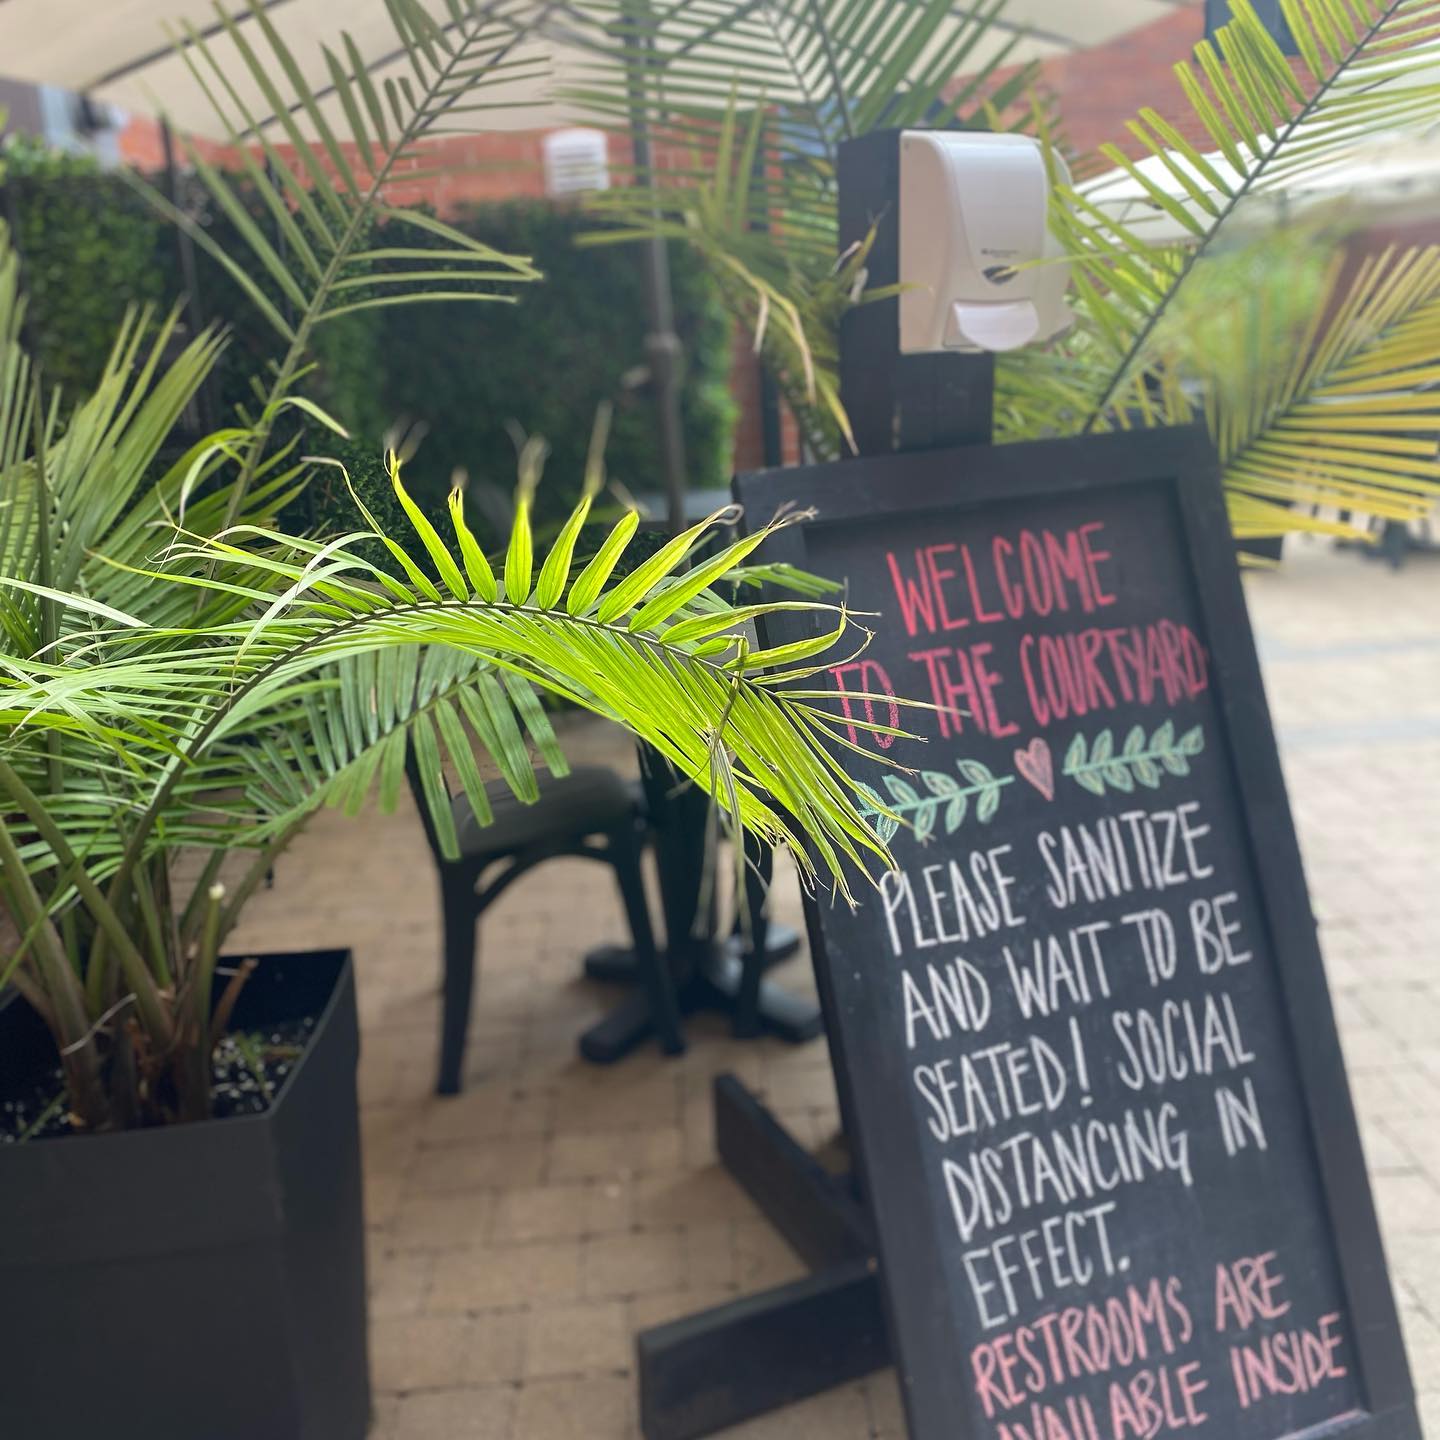 WELCOME
TO THE COURTYARD
PLEASE SANITIZE
AND WAIT TO BE
SEATED! SOCIAL
DISTANCING IN
EFFECT.
RESTROOMS ARE
AVAILABLE INSIDE